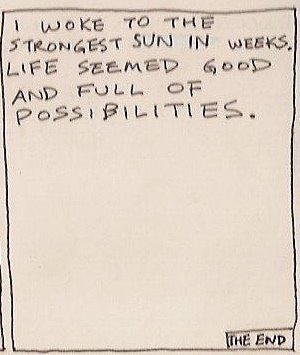 I WOKE TO THE
STRONGEST SUN IN WEEKS.
LIFE SEEMED GOOD
AND FULL OF
POSSIBILITIES.
THE END